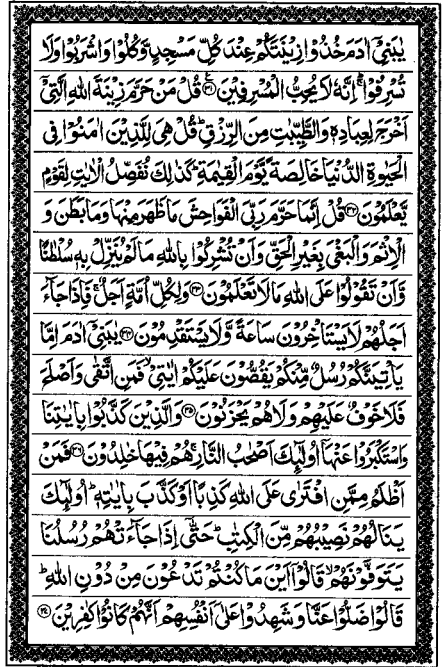 يٰبَنِيْۤ اٰدَمَ خُذُوْا زِيْنَتَكُمْ عِنْدَ كُلِّ مَسْجِدٍ وَّكُلُوْا وَاشْرَبُوْا وَلَا
تُسْرِفُوْا ۚ اِنَّهٗ لَا يُحِبُّ الْمُسْرِفِيْنَ ﴿۳۱﴾ قُلْ مَنْ حَرَّمَ زِيْنَةَ اللّٰهِ الَّتِيْۤ
اَخْرَجَ لِعِبَادِهٖ وَالطَّيِّبٰتِ مِنَ الرِّزْقِ ؕ قُلْ هِيَ لِلَّذِيْنَ اٰمَنُوْا فِي
الْحَيٰوةِ الدُّنْيَا خَالِصَةً يَّوْمَ الْقِيٰمَةِ ؕ كَذٰلِكَ نُفَصِّلُ الْاٰيٰتِ لِقَوْمٍ
يَّعْلَمُوْنَ ﴿۳۲﴾ قُلْ اِنَّمَا حَرَّمَ رَبِّيَ الْفَوَاحِشَ مَا ظَهَرَ مِنْهَا وَمَا بَطَنَ وَ
الْاِثْمَ وَالْبَغْيَ بِغَيْرِ الْحَقِّ وَاَنْ تُشْرِكُوْا بِاللّٰهِ مَا لَمْ يُنَزِّلْ بِهٖ سُلْطٰنًا
وَّاَنْ تَقُوْلُوْا عَلَى اللّٰهِ مَا لَا تَعْلَمُوْنَ ﴿۳۳﴾ وَلِكُلِّ اُمَّةٍ اَجَلٌ ۚ فَاِذَا جَآءَ
اَجَلُهُمْ لَا يَسْتَاْخِرُوْنَ سَاعَةً وَّلَا يَسْتَقْدِمُوْنَ ﴿۳۴﴾ يٰبَنِيْۤ اٰدَمَ اِمَّا
يَاْتِيَنَّكُمْ رُسُلٌ مِّنْكُمْ يَقُصُّوْنَ عَلَيْكُمْ اٰيٰتِيْ ۙ فَمَنِ اتَّقٰى وَاَصْلَحَ
فَلَا خَوْفٌ عَلَيْهِمْ وَلَا هُمْ يَحْزَنُوْنَ ﴿۳۵﴾ وَالَّذِيْنَ كَذَّبُوْا بِاٰيٰتِنَا
وَاسْتَكْبَرُوْا عَنْهَاۤ اُولٰٓئِكَ اَصْحٰبُ النَّارِ ۚ هُمْ فِيْهَا خٰلِدُوْنَ ﴿۳۶﴾ فَمَنْ
اَظْلَمُ مِمَّنِ افْتَرٰى عَلَى اللّٰهِ كَذِبًا اَوْ كَذَّبَ بِاٰيٰتِهٖ ؕ اُولٰٓئِكَ
يَنَالُهُمْ نَصِيْبُهُمْ مِّنَ الْكِتٰبِ ؕ حَتّٰۤى اِذَا جَآءَتْهُمْ رُسُلُنَا
يَتَوَفَّوْنَهُمْ ۙ قَالُوْۤا اَيْنَ مَا كُنْتُمْ تَدْعُوْنَ مِنْ دُوْنِ اللّٰهِ ؕ
قَالُوْا ضَلُّوْا عَنَّا وَشَهِدُوْا عَلٰۤى اَنْفُسِهِمْ اَنَّهُمْ كَانُوْا كٰفِرِيْنَ ﴿۳۷﴾